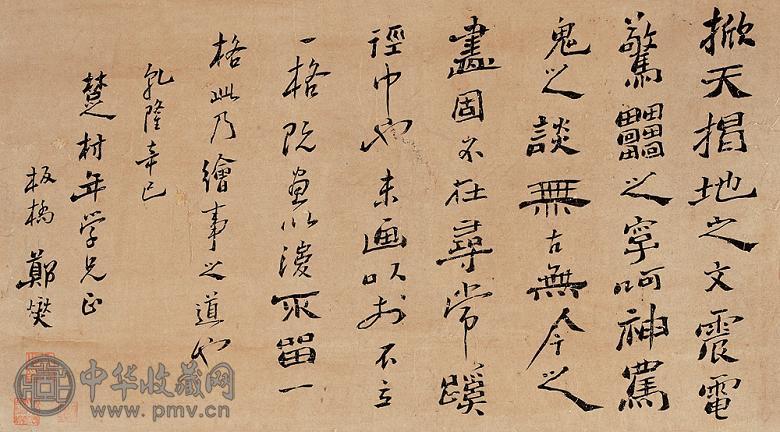 掀天揭地之文震電
驚靁之字呵神罵
鬼之談無古無今之
畫固不在尋常蹊
徑中也未画以前不立
一格既画以後不留一
格此乃繪事之道也
乾隆辛巳
楚村年学兄正
板橋鄭燮
中华收藏网
www.pmv.cn